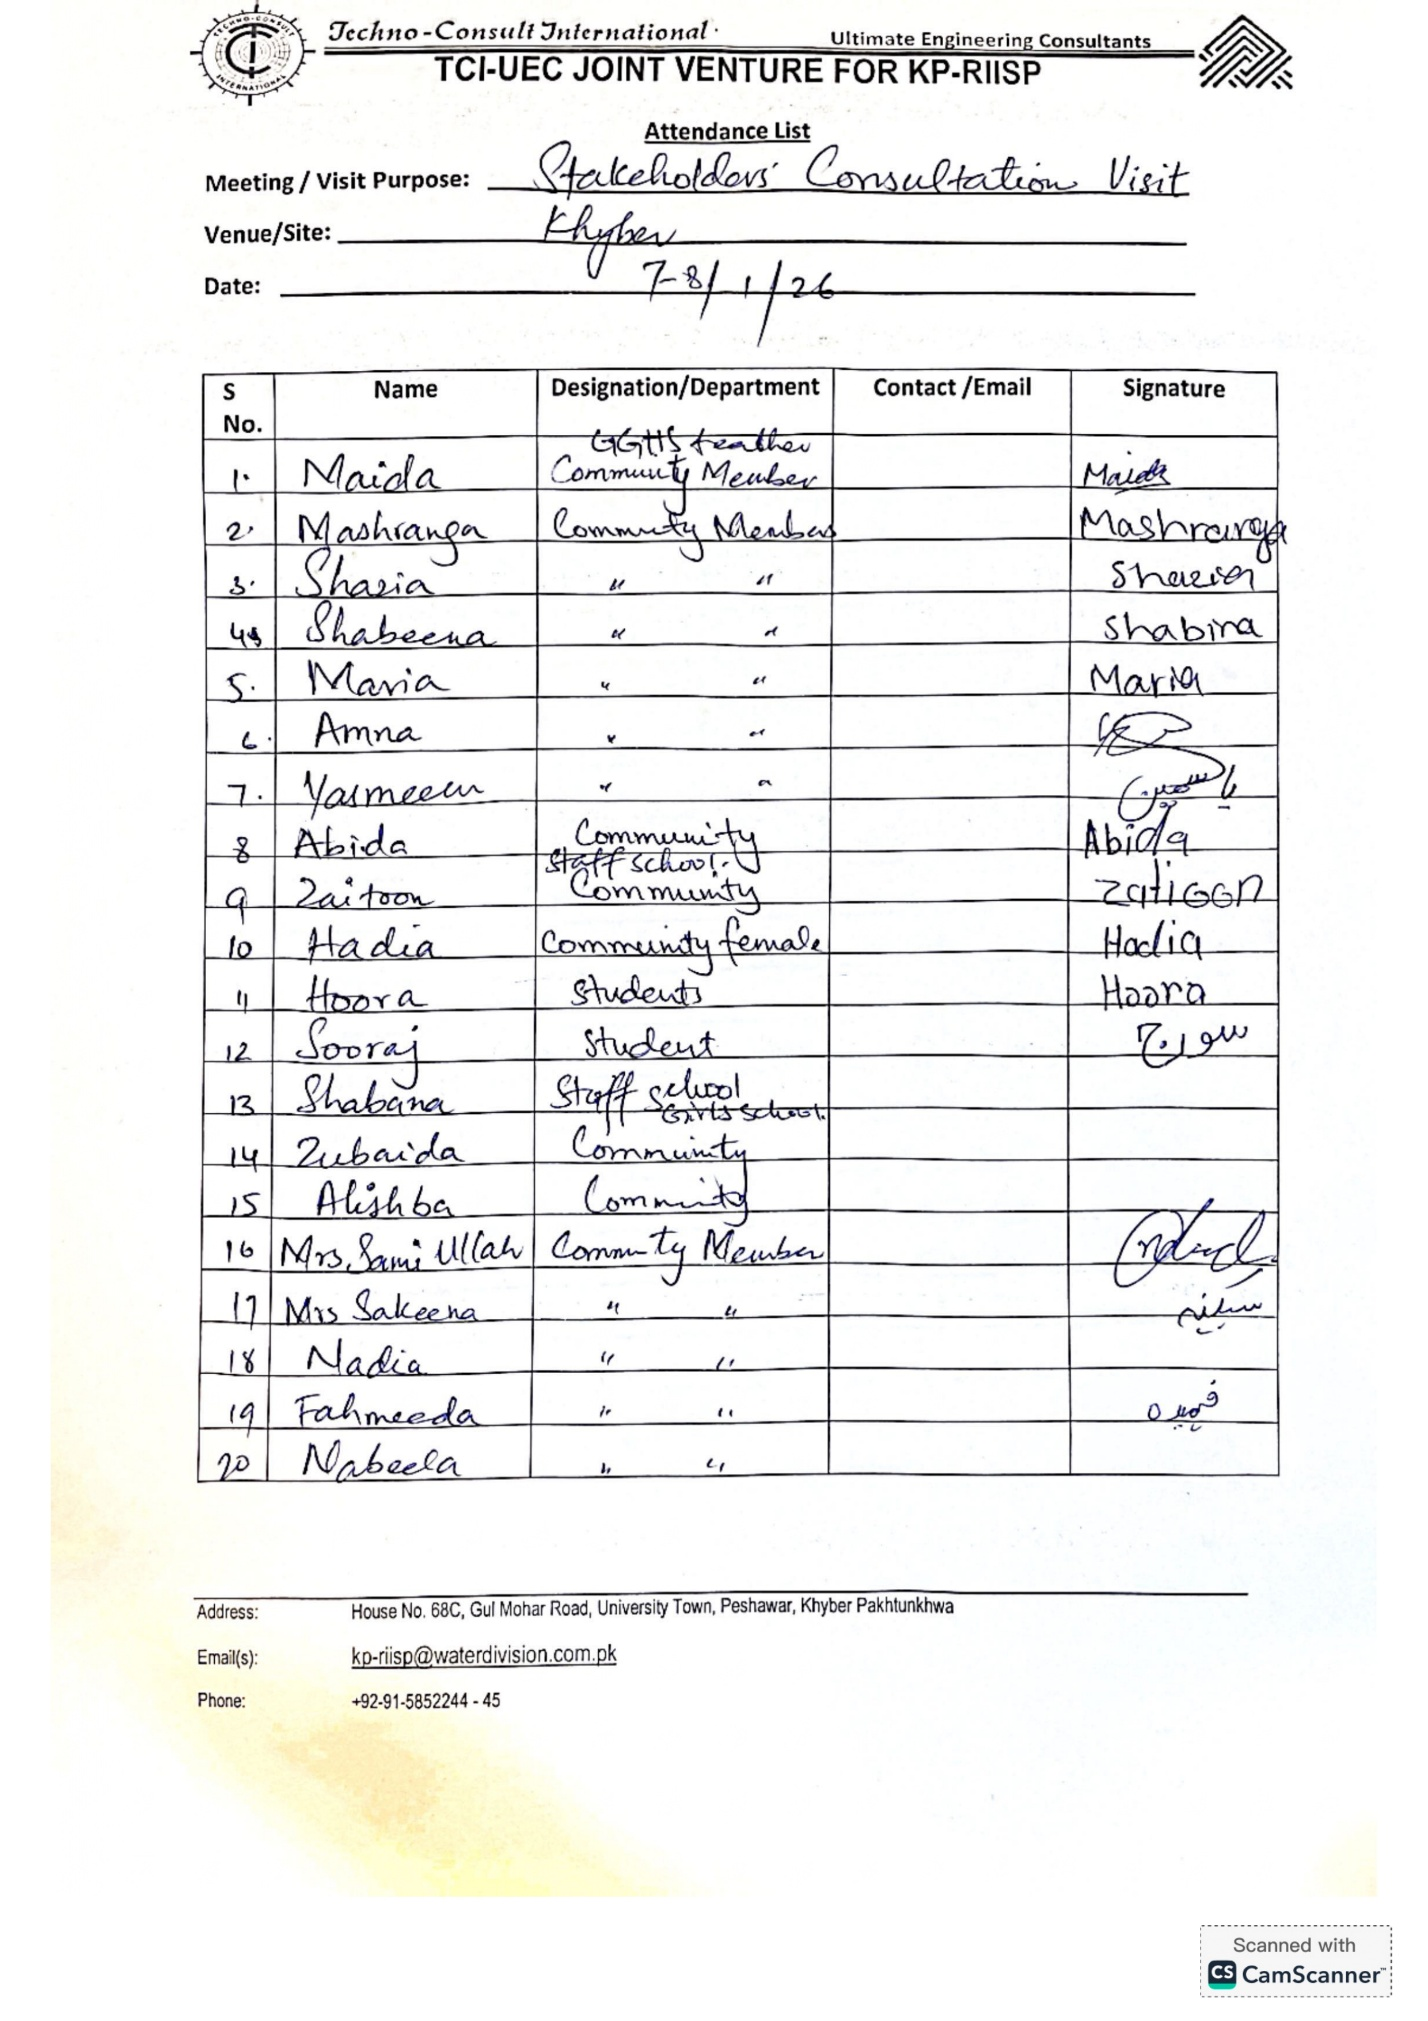 TECHNO-CONSULT INTERNATIONAL
Techno-Consult International
Ultimate Engineering Consultants
TCI-UEC JOINT VENTURE FOR KP-RIISP
Attendance List
Meeting / Visit Purpose: Stakeholders' Consultation Visit
Venue/Site: Khyber
Date: 7-8/1/26
S No. Name Designation/Department Contact /Email Signature
GGHS teacher
1. Maida Community Member Maida
2. Mashranga Community Member Mashranga
3. Shazia " " Shazia
4 Shabeena " " Shabina
5. Maria " " Maria
6. Amna " "
7. Yasmeen " " یاسمین
8 Abida Community Abida
Staff school.
9 Zaitoon Community Zatioon
10 Hadia Community female Hadia
11 Hoora Students Hoora
12 Sooraj Student سورج
13 Shabana Staff school
Girls School.
14 Zubaida Community
15 Alishba Community
16 Mrs. Sami Ullah Community Member
17 Mrs Sakeena " " سکینہ
18 Nadia " "
19 Fahmeeda " " فہمیدہ
20 Nabeela " "
Address: House No. 68C, Gul Mohar Road, University Town, Peshawar, Khyber Pakhtunkhwa
Email(s): kp-riisp@waterdivision.com.pk
Phone: +92-91-5852244 - 45
Scanned with
CS CamScanner